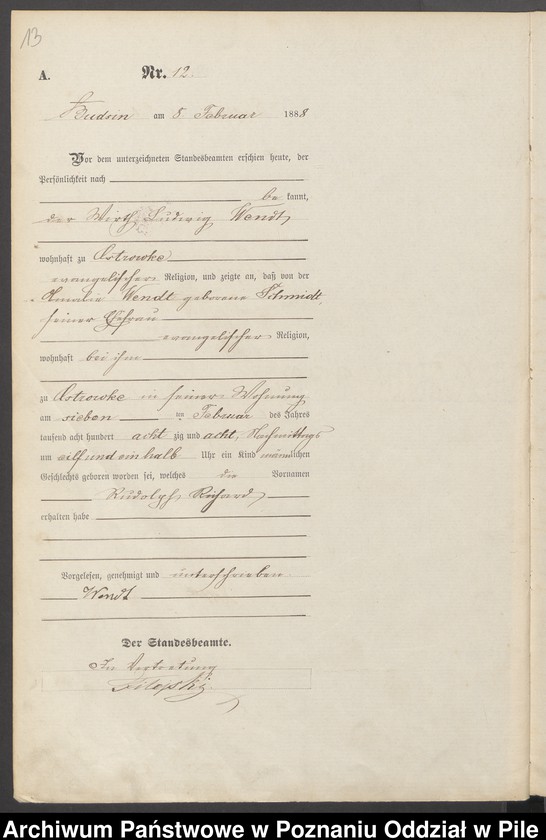 13
A.
Nr. 12.
Budsin am 8. Februar 1888
Vor dem unterzeichneten Standesbeamten erschien heute, der
Persönlichkeit nach
be kannt,
der Wirth Ludwig Wendt
wohnhaft zu Ostrowke
evangelischer Religion, und zeigte an, daß von der
Amalie Wendt geborene Schmidt
seiner Ehefrau
evangelischer Religion,
wohnhaft bei ihm
zu Ostrowke in seiner Wohnung
am sieben ten Februar des Jahres
tausend acht hundert acht zig und acht, Nachmittags
um eilf und ein halb Uhr ein Kind männlichen
Geschlechts geboren worden sei, welches die Vornamen
Rudolph Richard
erhalten habe
Vorgelesen, genehmigt und unterschrieben
Wendt
Der Standesbeamte.
In Vertretung
Archiwum Państwowe w Poznaniu Oddział w Pile